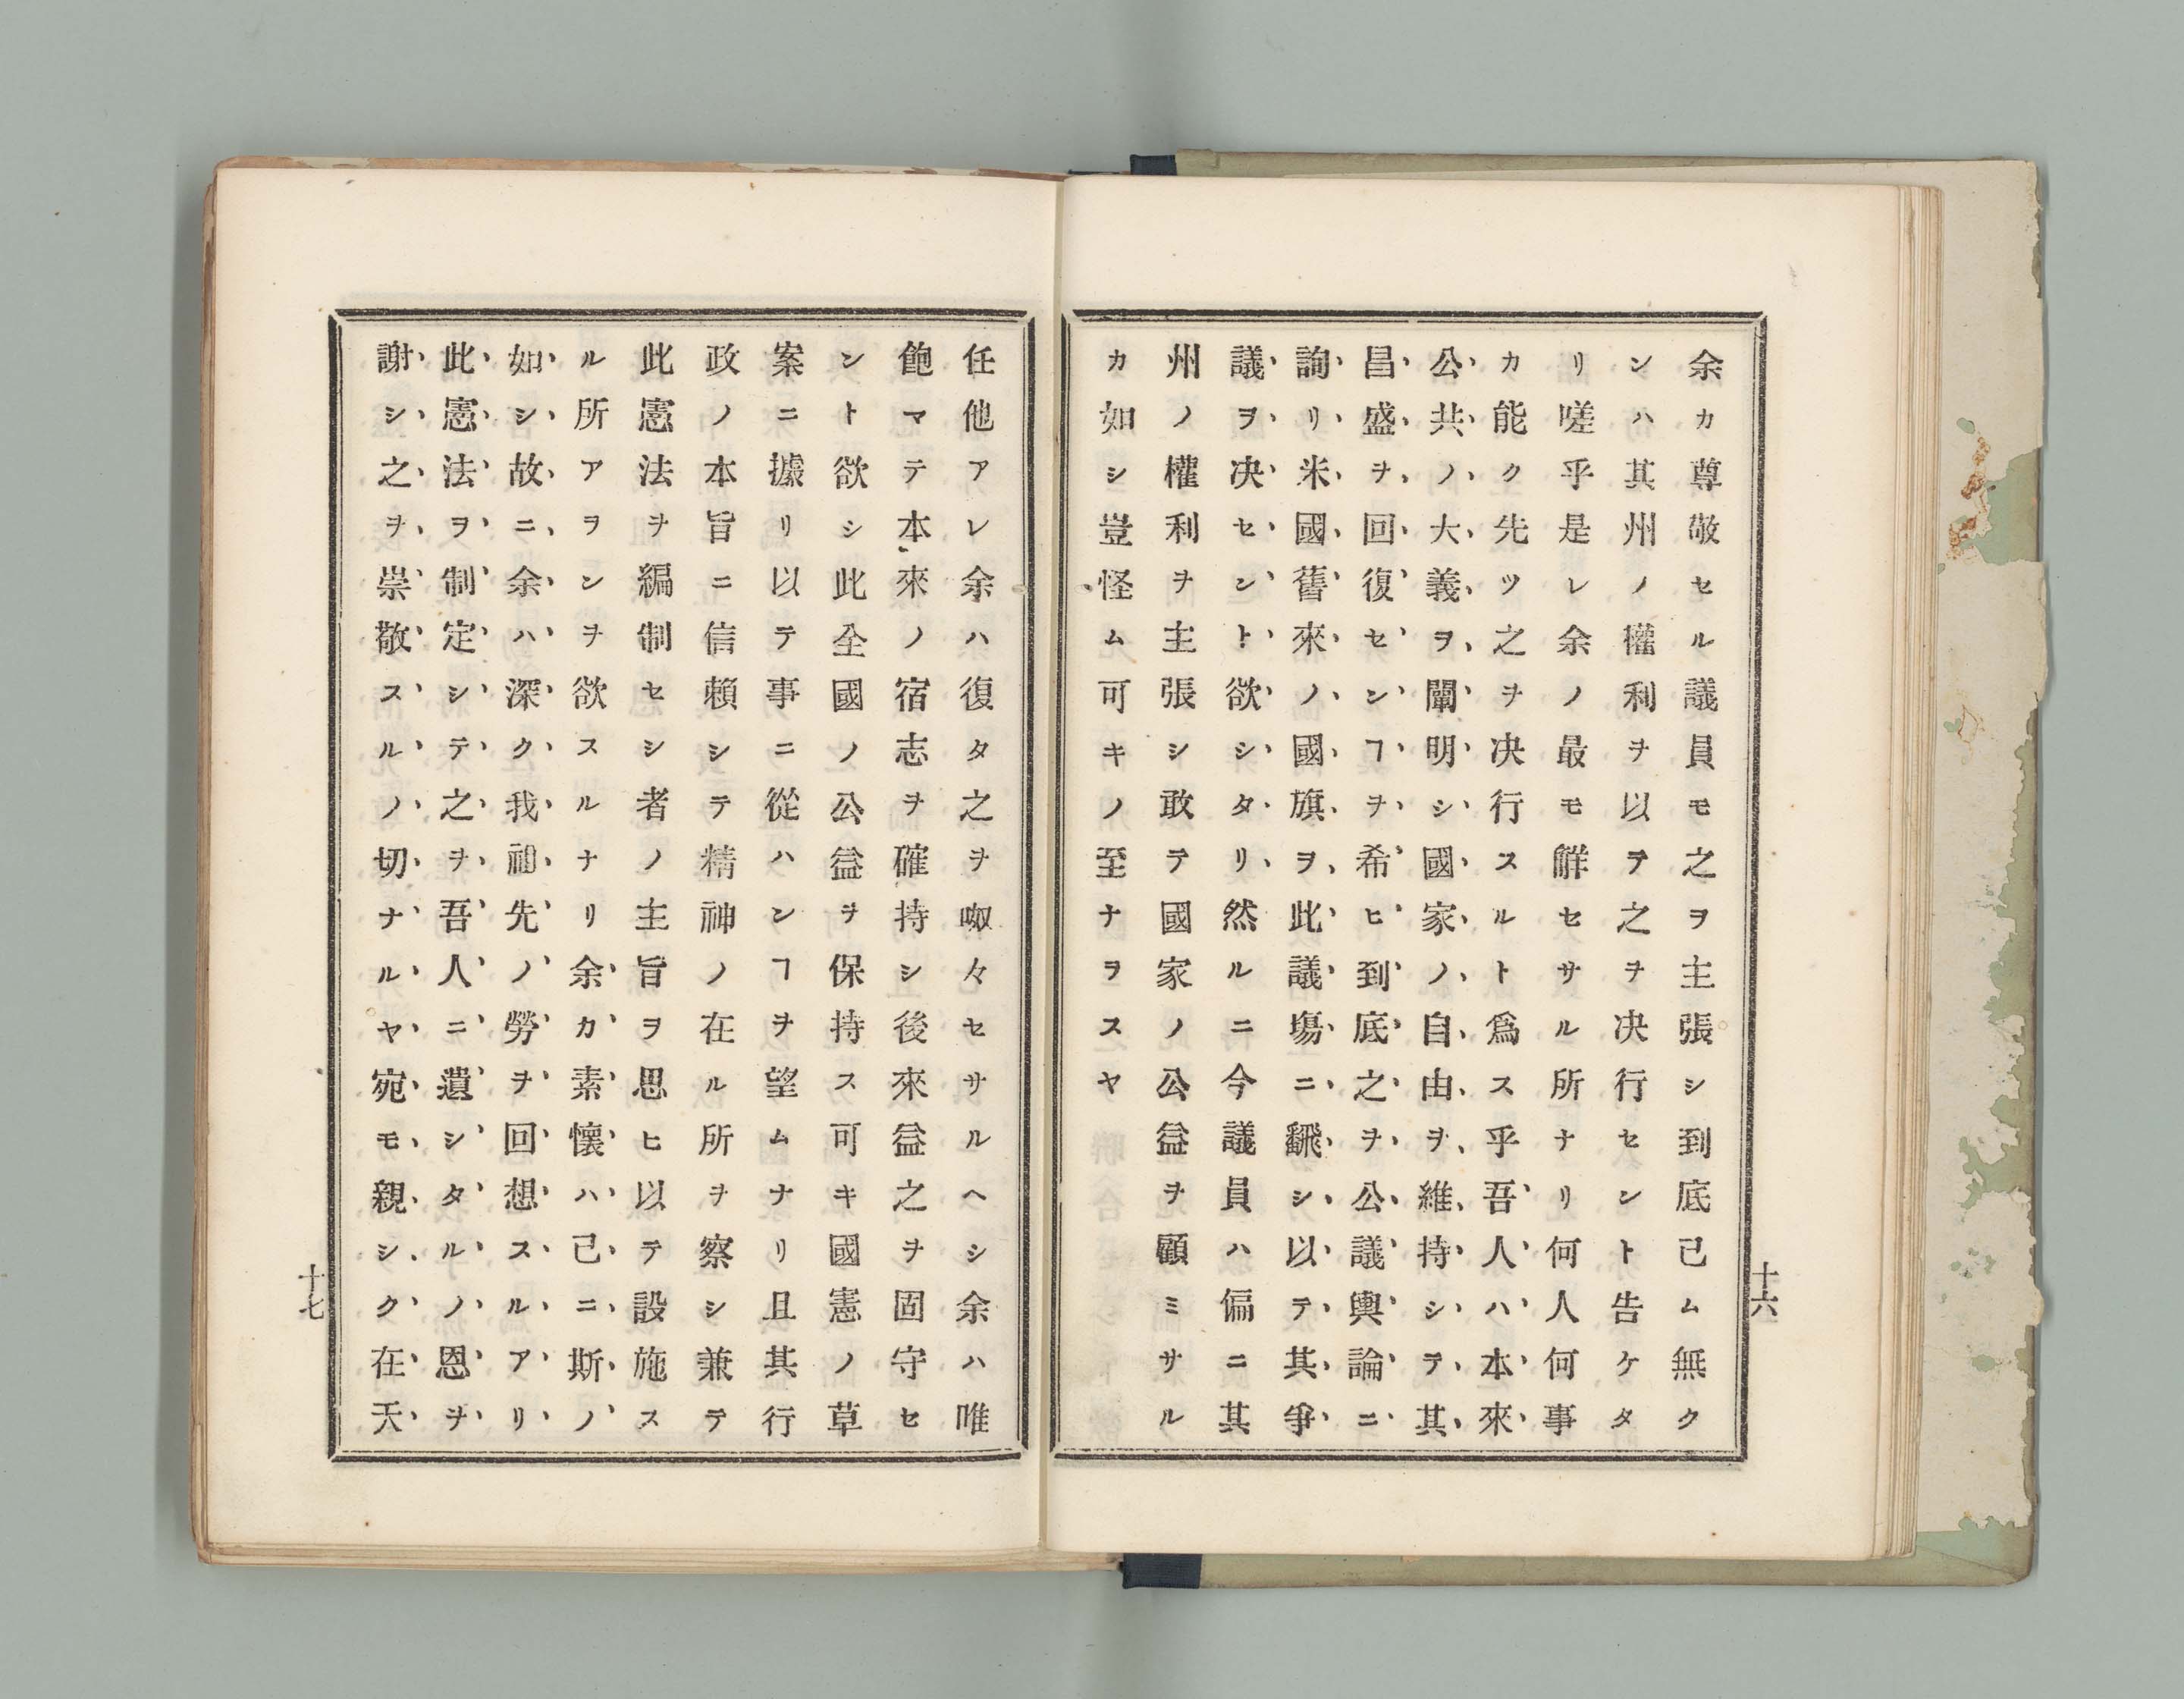 余カ尊敬セル議員モ之ヲ主張シ到底己ム無ク
ンハ其州ノ權利ヲ以テ之ヲ决行セント告ケタ
リ嗟乎是レ余ノ最モ解セサル所ナリ何人何事
カ能ク先ツ之ヲ决行スルト爲ス乎吾人ハ本來
公共ノ大義ヲ闡明シ國家ノ自由ヲ維持シテ其
昌盛ヲ回復センヿヲ希ヒ到底之ヲ公議輿論ニ
詢リ米國舊來ノ國旗ヲ此議塲ニ飜シ以テ其爭
議ヲ决セント欲シタリ然ルニ今議員ハ偏ニ其
州ノ權利ヲ主張シ敢テ國家ノ公益ヲ顧ミサル
カ如シ豈怪ム可キノ至ナラスヤ
十六
任他アレ余ハ復タ之ヲ呶々セサルヘシ余ハ唯
飽マテ本來ノ宿志ヲ確持シ後來益之ヲ固守セ
ント欲シ此全國ノ公益ヲ保持ス可キ國憲ノ草
案ニ據リ以テ事ニ從ハンヿヲ望ムナリ且其行
政ノ本旨ニ信賴シテ精神ノ在ル所ヲ察シ兼テ
此憲法ヲ編制セシ者ノ主旨ヲ思ヒ以テ設施ス
ル所アランヲ欲スルナリ余カ素懷ハ己ニ斯ノ
如シ故ニ余ハ深ク我祖先ノ勞ヲ回想スルアリ
此憲法ヲ制定シテ之ヲ吾人ニ遺シタルノ恩ヲ
謝シ之ヲ崇敬スルノ切ナルヤ宛モ親シク在天
十七